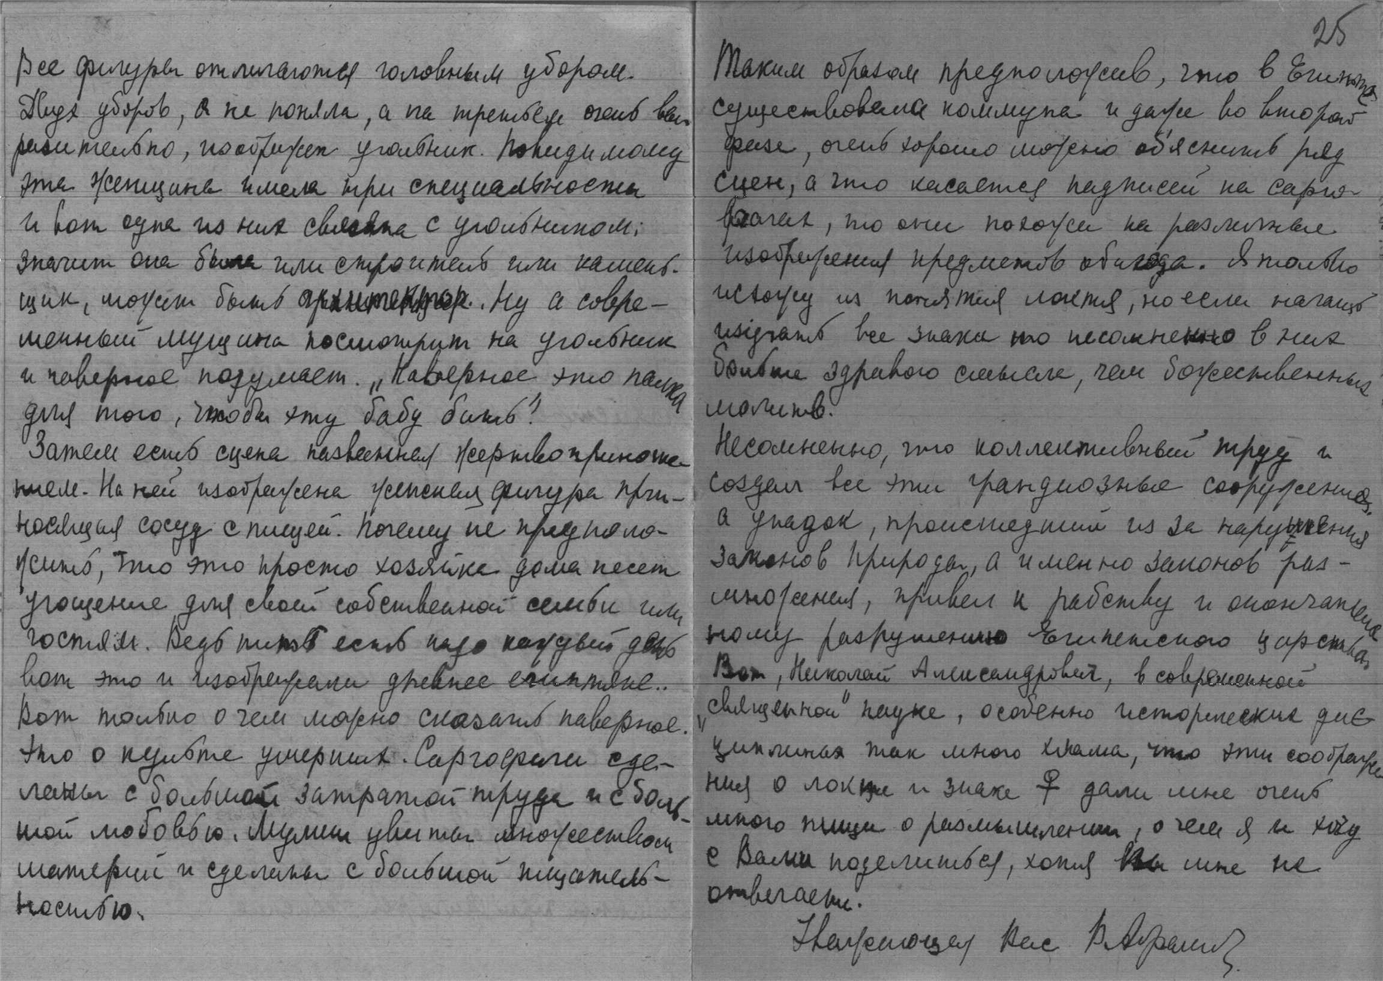 Все фигуры отличаются головным убором.
Двух уборов, я не поняла, а на третьем очень вы-
разительно, изображен угольник. Повидимому
эта женщина имела три специальности
и вот одна из них связана с угольником;
значит она была или строитель или камень-
щик, может быть архитектор. Ну а совре-
менный мущина посмотрит на угольник
и наверное подумает. „Наверное это палка
для того, чтобы эту бабу бить“!
Затем есть сцена названная жертвоприноше-
нием. На ней изображена женская фигура при-
носящая сосуд с пищей. Почему не предполо-
жить, что это просто хозяйка дома несет
угощение для своей собственной семьи или
гостям. Ведь пить есть надо каждый день
вот это и изображали древнее египтяне..
Вот только о чем можно сказать наверное.
Это о культе умерших. Саргофаги сде-
ланы с большой затратой труда и с боль-
шой любовью. Мумии увиты множеством
материй и сделаны с большой тщатель-
ностью.
25
Таким образом предположив, что в Египте
существовала коммуна и даже во второй
фазе, очень хорошо можно об'яснить ряд
сцен, а что касается надписей на сарго-
фагах, то они похожи на различные
изображения предметов обихода. Я только
исхожу из понятия локтя, но если начать
изучать все знаки то несомненно в них
больше здравого смысла, чем божественных
молитв.
Несомненно, что коллективный труд и
создал все эти грандиозные сооружения,
а упадок, происшедший из за нарушения
законов природы, а именно законов раз-
множения, привел к рабству и окончатель
ному разрушению Египетского царства.
Вот, Николай Александрович, в современной
„священной“ науке, особенно исторических дис-
циплинах так много хлама, что эти соображе
ния о локте и знаке ♀ дали мне очень
много пищи о размышлении, о чем я и хочу
с Вами поделиться, хотя Вы мне не
отвечаете.
Уважающая Вас